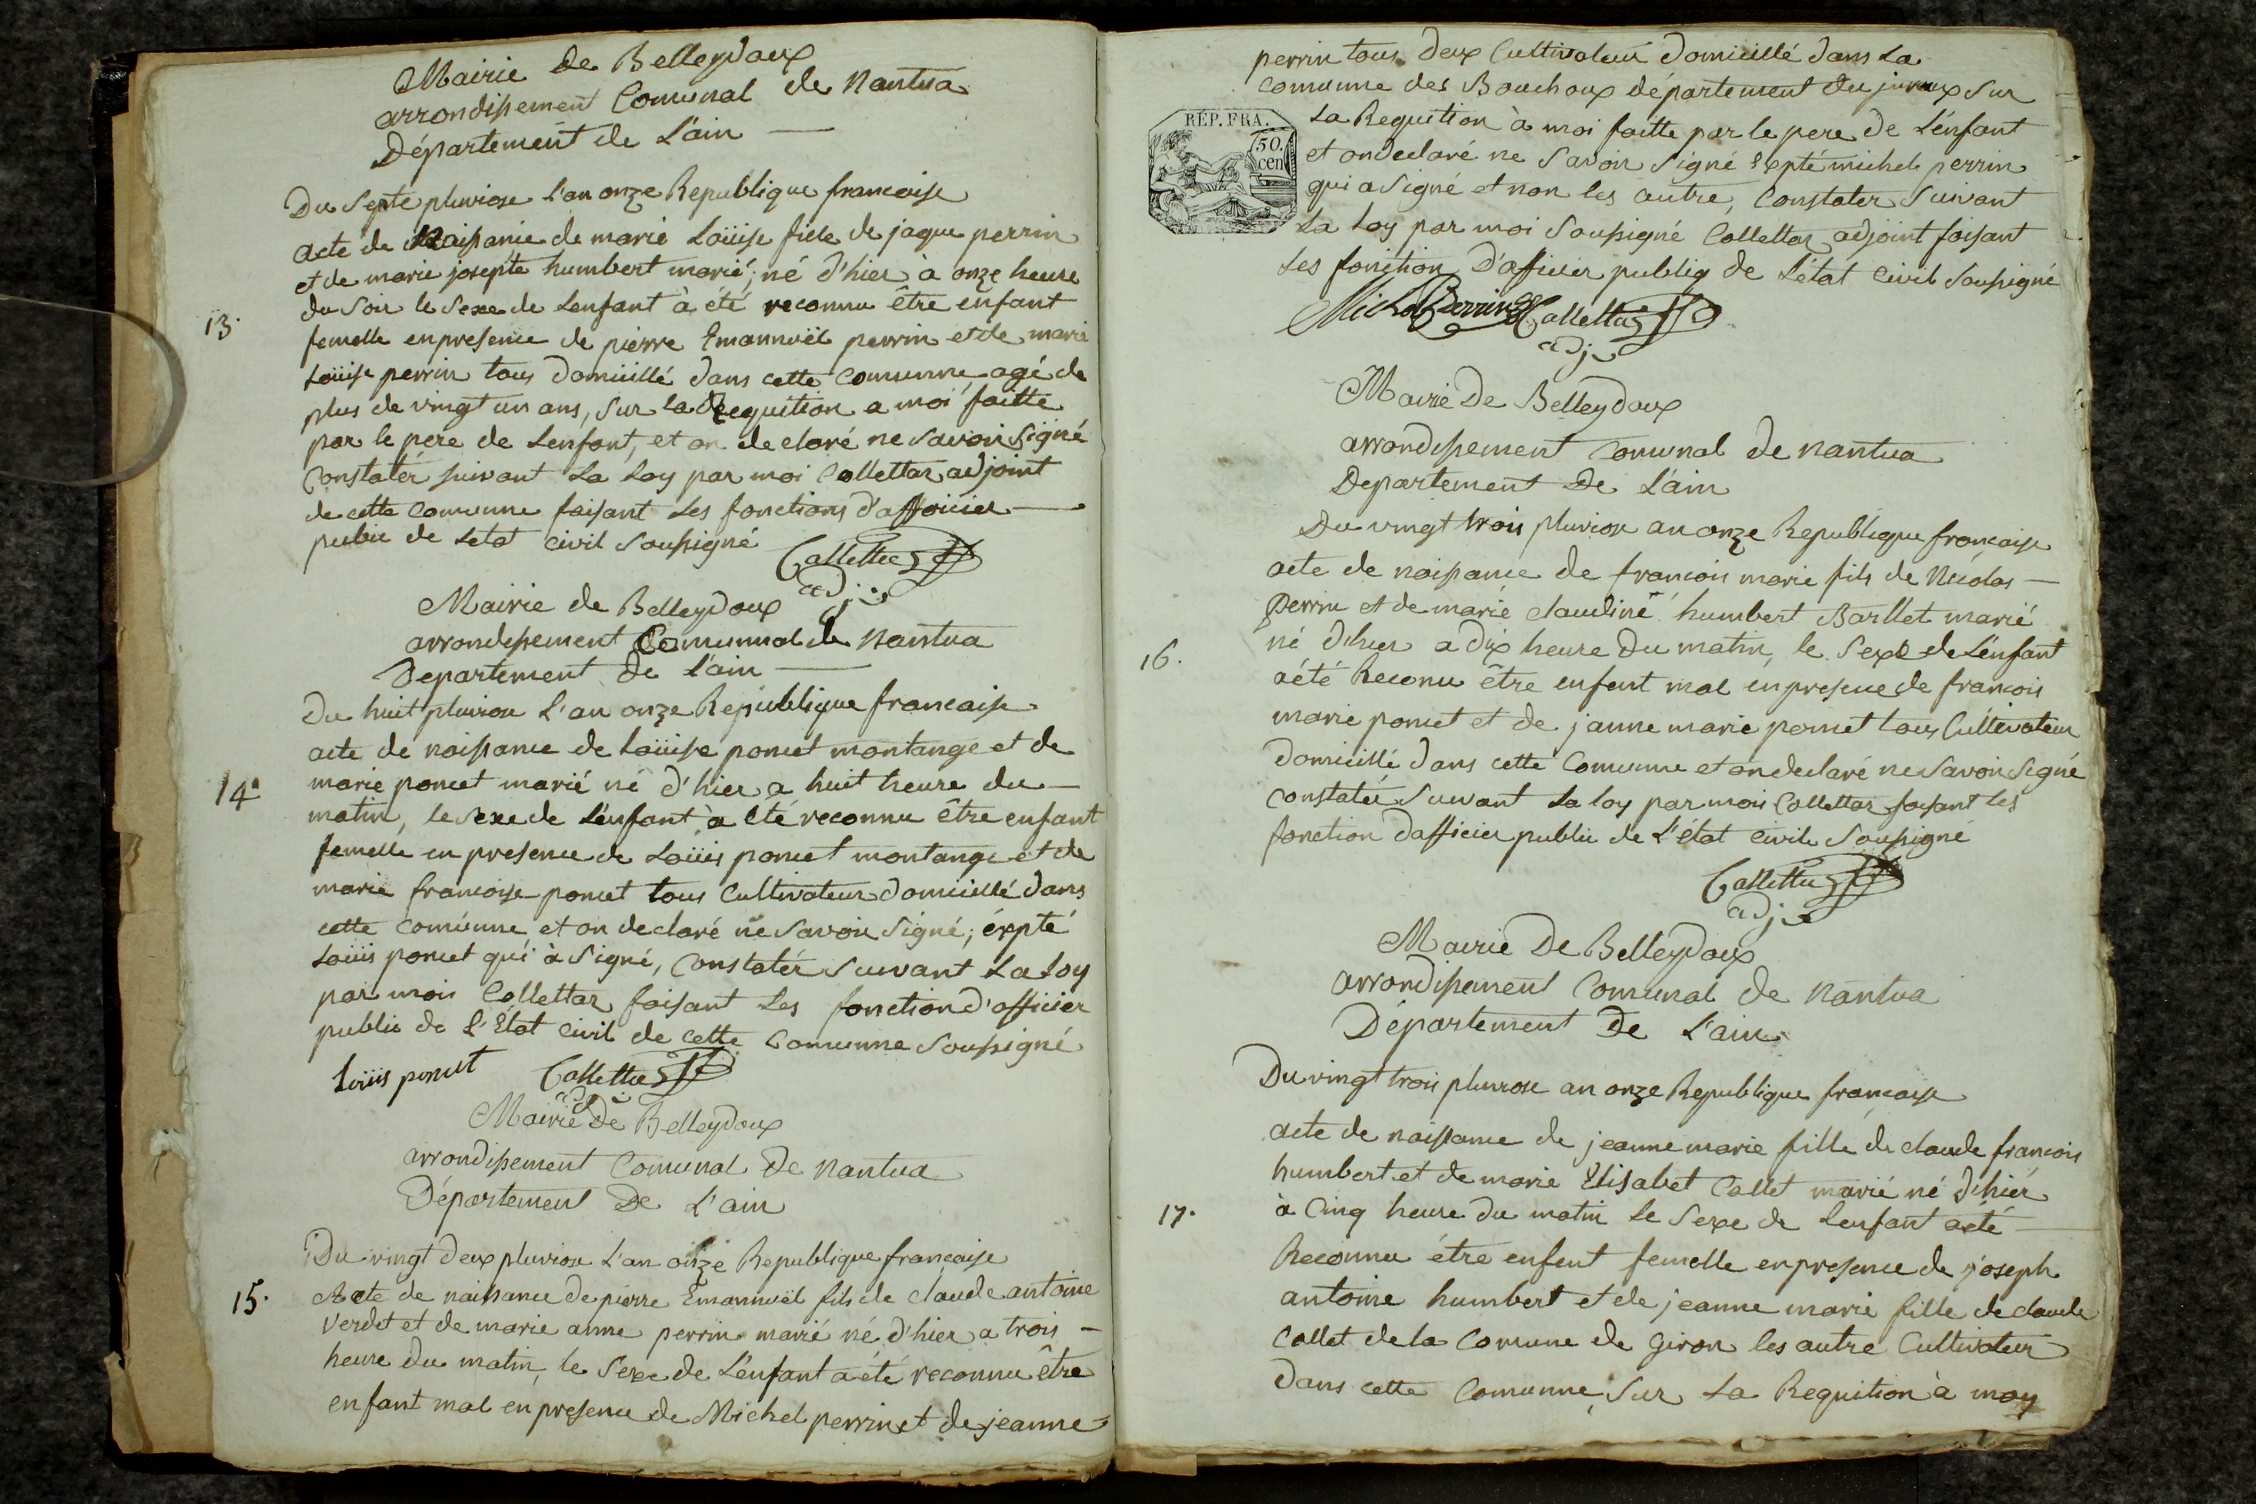 Mairie de Belleydoux
arrondissement Comunal de Nantua
Département de L'ain
Du Septe pluviose L'an onze Republique francoise
13. acte de Naissanie de marie Loüise fille de jaque perrin
et de marie josepte humbert marié; né d'hier à onze heure
du Soir le Sexe de Lenfant à été reconnu être enfant
femelle enpresence de pierre Emannuël perrin et de marie
Loüise perrin tous domicillé dans cette comunne agé de
plus de vingt un ans, Sur la Requition a moi faitte
par le pere de Lenfant, et on declaré ne Savoir Signé
Constatér suivant La Loy par moi Collettar adjoint
de cette comunne faisant Les fonctions d'afficier
public de Letat civil Soussigné
Collettar
adj
Mairie de Belleydoux
arrondissement Comunnal de Nantua
Departement de L'ain
Du huit pluviose L'an onze Republique francaise
acte de naissance de Loüise poncet montange et de
14. marie poncet marié né d'hier a huit heure du
matin, le Sexe de L'enfant à été reconnu être enfant
femelle en presence de Loüis poncet montange et de
marie francoise poncet tous Cultivateur domicillé dans
cette comunne et on declaré ne Savoir Signé, éxpté
Loüis poncet qui à Signé, Constatér Suivant La Loy
par mois Collettar faisant Les fonction d'afficier
public de L'Etat Civil de cette Comunne Soussigné
Loüis poncet Collettar
adj
Mairie De Belleydoux
arrondissement Comunal De nantua
Département De L'ain
Du vingt deux pluviose L'an onze Republique française
15. Acte de naissance de pierre Emannuël fils de claude antoine
Verdet et de marie anne perrin marié né d'hier a trois
heure du matin, le Sexe de L'enfant a été reconnu être
enfant mal en presence de Michel perrin et de jeanne
perrin tous deux Cultivateur domicillé dans La
comunne des Bouchoux département du juraux Sur
RÉP. FRA.
50.
cen
La Requition à moi faitte par le pere de L'énfant
et on declaré ne Savoir Signé éxpté michel perrin
qui a Signé et non les autre, Constater Suivant
La Loy par moi Soussigné Collettar adjoint faisant
Les fonction D'afficier publiq de L'état Civil Soussigné
Michel Perrin Collettar
adj
Mairie De Belleydoux
arrondissement comunal de nantua
Departement De L'ain
Du vingt trois pluviose an onze Republique francoise
acte de naissance de francois marie fils de Nicolas
Perrin et de marie claudine humbert Barllet marié
16. né d'hier a dix heure Du matin, le Sexe de L'énfant
aété Reconu être enfant mal enpresence de francois
marie poncet et de janne marie poncet tous Cultivateur
domicillé dans cette Comunne et on declaré ne Savoir Signé
constatér Suivant La loy par mois Collettar faisant les
fonction dafficier public de L'état Civile Soussigné
Collettar
adj
Mairie De Belleydoux
arrondissement Comunal de nantua
Département De L'ain
Du vingt trois pluviose an onze Republique françoise
acte de naissance de jeanne marie fille de claude francois
humbert et de marie Elisabet Collet marié né d'hiér
17. à Cinq heure du matin le Sexe de Lenfant aété
Reconnu être enfent femelle enpresence de joseph
antoine humbert et de jeanne marie fille de claude
Collet de la Comune de Giron les autre Cultivateur
dans cette Comunne, Sur La Requition à moy